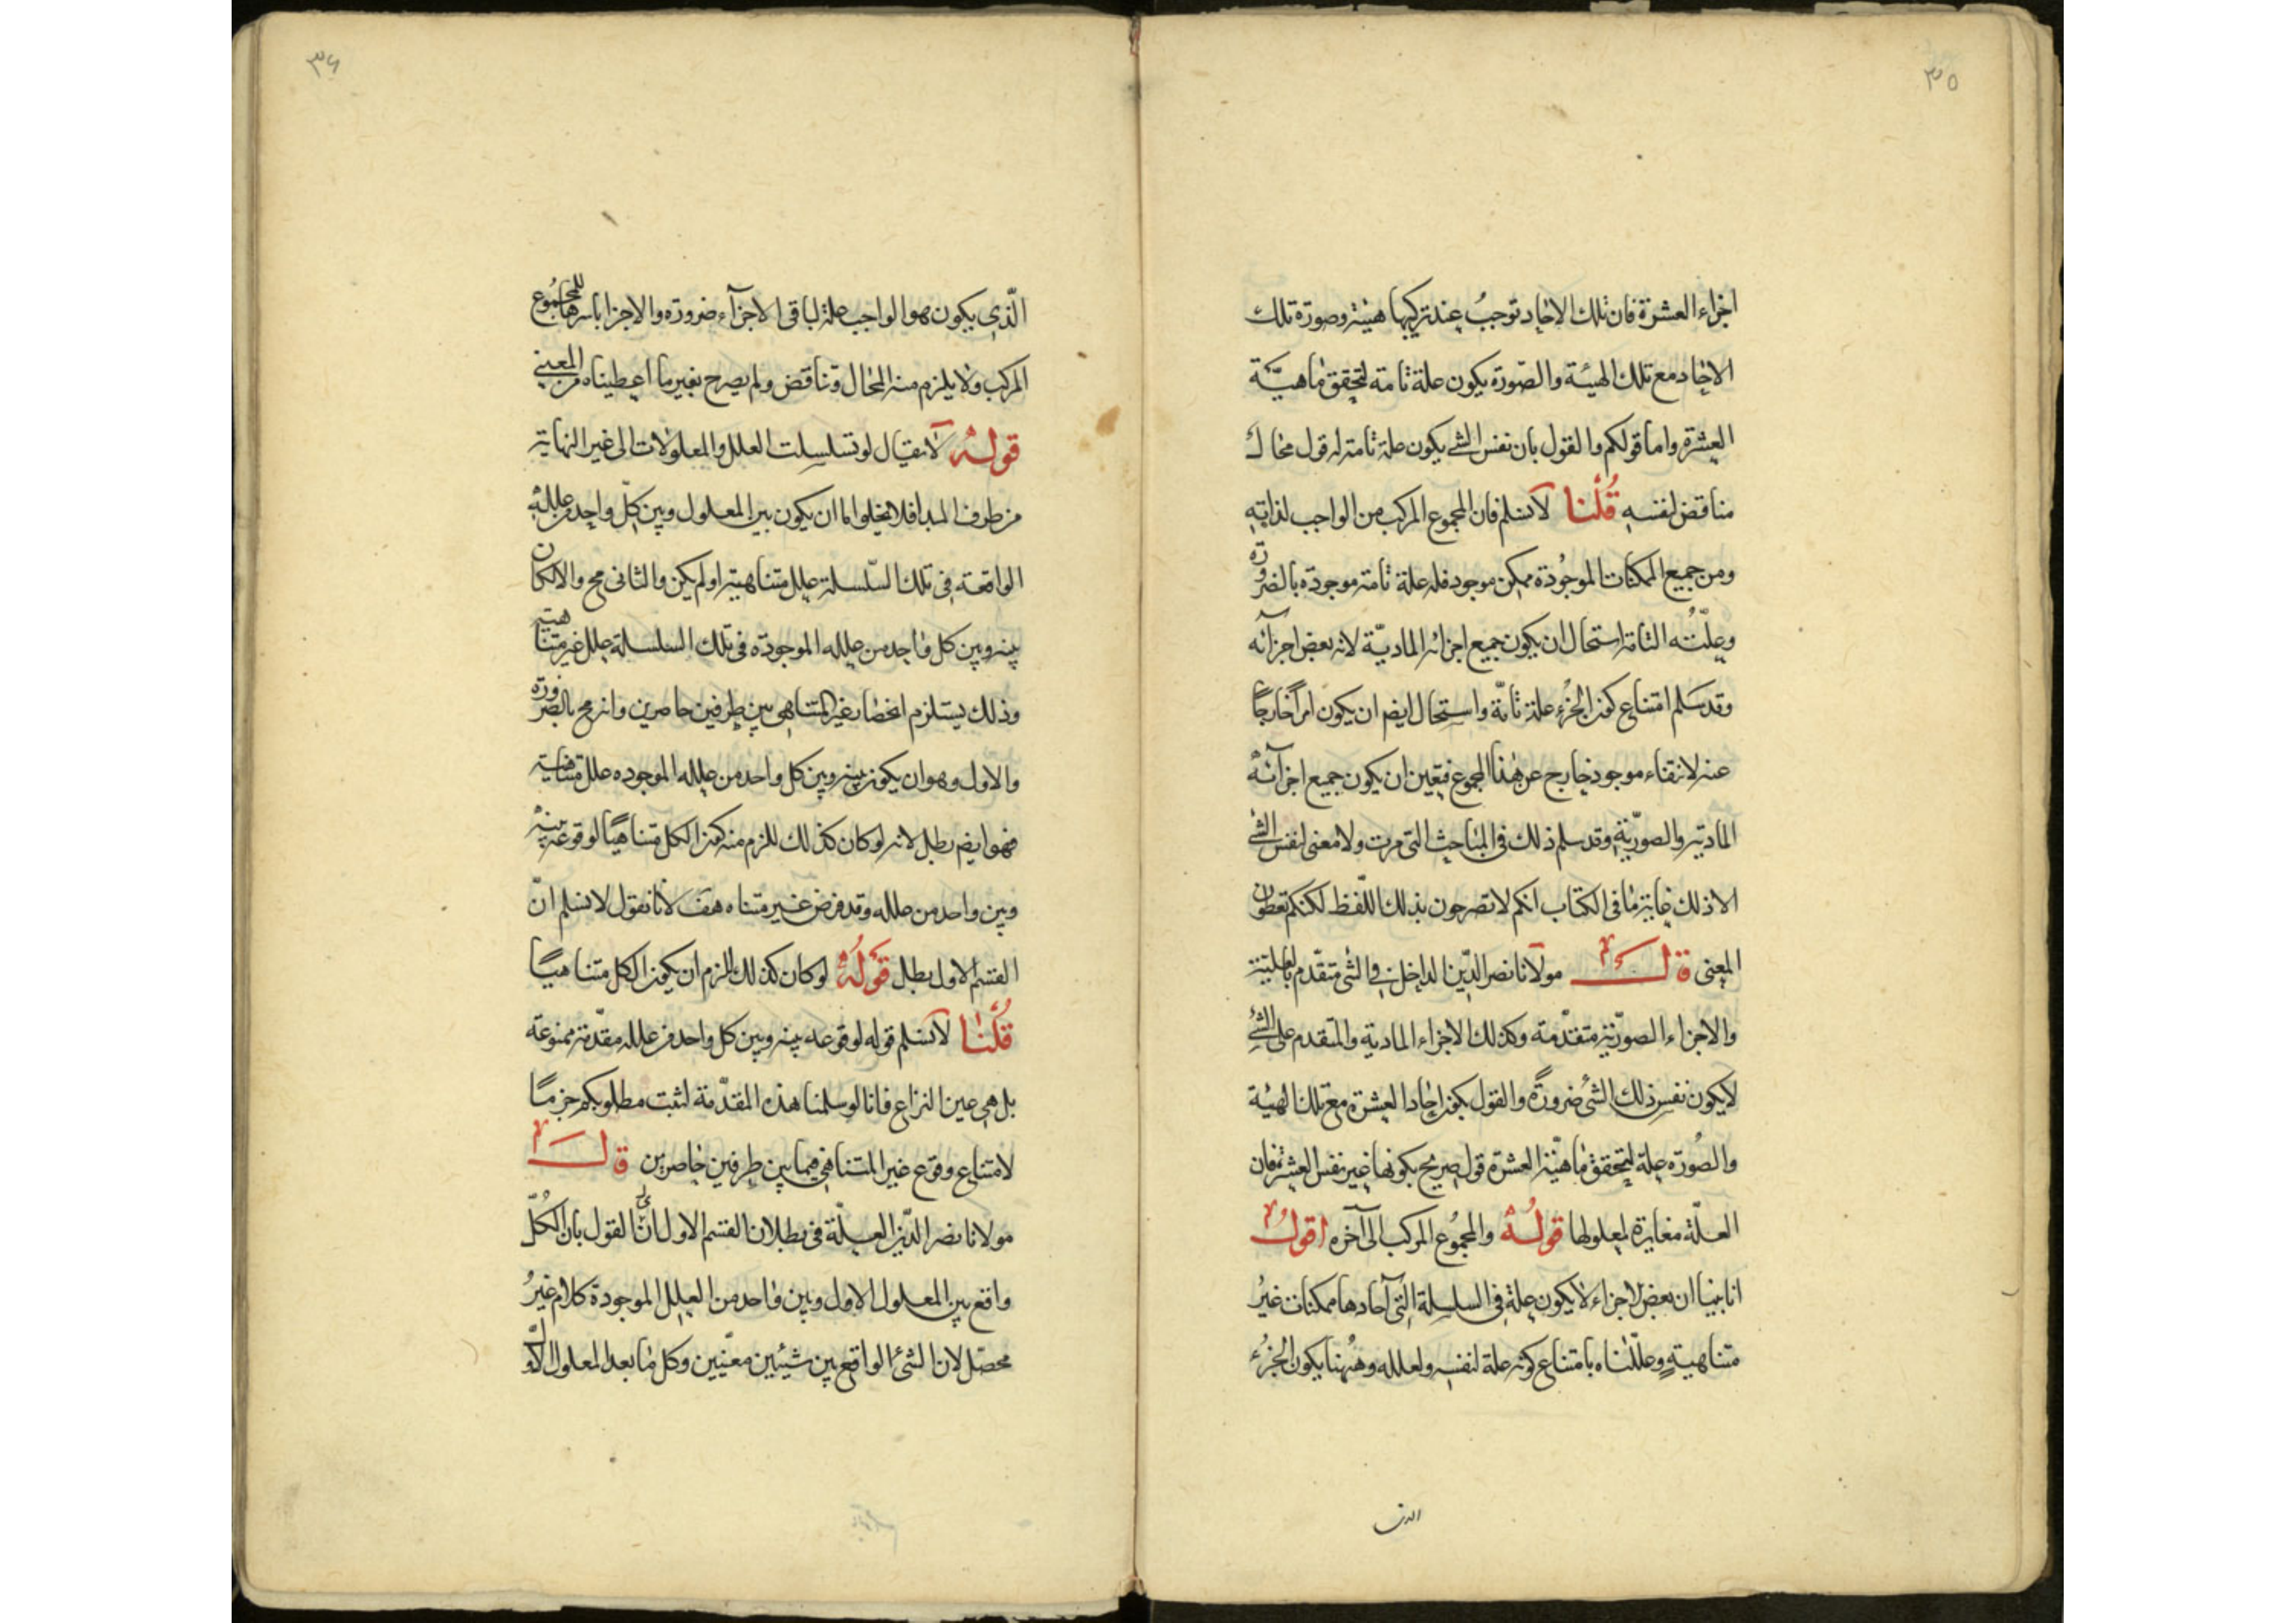 ٣٥
اجزاء العشرة فان تلك الاحاد توجبُ عند تركيبها هيئة وصورة تلك
الاحاد مع تلك الهيئة والصّورة يكون علة تامة لتحقق ماهيّة
العشرة واما قولكم والقول بان نفس الشئ يكون علة تامة له قول محال
مناقض لنفسه قُلْنا لا نسلم فان المجموع المركب من الواجب لذاته
ومن جميع الممكنات الموجُودة ممكن موجود فله علة تامة موجودة بالضرورة
وعلّتُه التامة استحال ان يكون جميع اجزائه الماديّة لانه بعض اجزائه
وقد سَلم امتناع كون الجزُء علة تامّة واستحال ايضم ان يكون امراً خارجاً
عنه لانتفاء موجود خارج عن هٰذا المجموع فتعين ان يكون جميع اجزآئهُ
المادية والصوريّة وقد سلم ذلك في المباحث التي مرت ولا معنى لنفس الشئ
الا ذلك غاية ما في الكتاب انكم لا تصرحون بذلك اللّفظ لكنكم تعطون
المعنى قال مولانا نصر الدّين الداخل في الشئ متقدّم بالعلية
والاجزاء الصوريّة متقدّمة وكذلك الاجزاء المادية والمتقدم على الشئ
لا يكون نفس ذلك الشئ ضرورةً والقول بكون احاد العشرة مع تلك الهيئة
والصُورة علة لتحقق ماهيّة العشرة قول صريح بكونها غير نفس العشرة فان
العلّة مغايرة لمعلولها قولُهُ والمجمُوع المركب الى آخره اقولُ
انا بينا ان بعض الاجزاء لا يكون علة في السلسلة التي آحادها ممكنات غيرُ
متناهيةٍ وعلّلناه بامتناع كونه علة لنفسه ولعلله وهٰهنا يكون الجزُء
الذى
٣٦
الّذى يكون هو الواجب علة لباقى الاجزآء ضرورة والاجزا باسرها للمجمُوع
المركب ولا يلزم منه المحال وتناقض ولم يصرح بغير ما اعطيناه من المعنى
قولهُ لا نقيال لو تسلسلت العلل والمعلولات الى غير النهاية
من طرف المبدا فلا يخلو اما ان يكون بين المعلول وبين كلّ واحد من علله
الواقعة فى تلك السّلسلة علل متناهية او لم يكن والثانى مح والا لكان
بينه وبين كل واحد من علله الموجودة فى تلك السلسلة علل غير متناهية
وذلك يستلزم انحصار غير المتناهى بين طرفين حاصرين وانه مح بالضرورة
والاول وهو ان يكون بينه وبين كل واحد من علله الموجوده علل متناهية
فهو ايضم بطل لانه لو كان كذلك للزم منه كون الكل متناهيًا لوقوعه بينهُ
وبين واحد من علله وقد فرض غير متناه هف لانا نقول لا نسلم انّ
القسم الاول بطل قولُهُ لو كان كذلك لزم ان يكون الكل متناهيًا
قُلْنٰا لا نسلم قوله لوقوعه بينه وبين كل واحد من علله مقدّمة ممنوعة
بل هى عين النزاع فانا لو سلمنا هذه المقدّمة لثبت مطلوبكم جزمًا
لامتناع وقوع غير المتناهى فيما بين طرفين حاصرين قال
مولانا نصر الدّين العلّة فى بطلان القسم الاول ان القول بان الكُلّ
واقع بين المعلول الاول وبين واحد من العلل الموجودة كلام غيرُ
محصّل لان الشئ الواقع بين شيئين معيّنين وكل ما بعد المعلول الاوّل